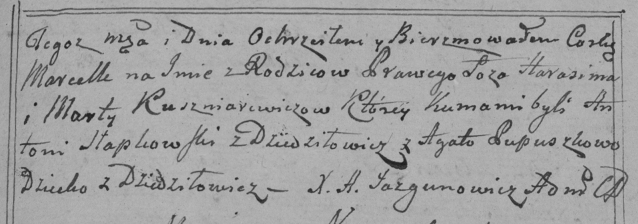 Tegoż mśa i Dnia Ochrzciłem y Bierzmowałem Corkę
Marcellę na Imie z Rodzicow Prawego Łoża Harasima
i Marty Kuszniarewiczow Ktorey Kumami byli An
toni Słapkowski z Dziedziłowicz z Agatą Pupuszkową
Dziecko z Dziedziłowicz – X. A. Jazgunowicz